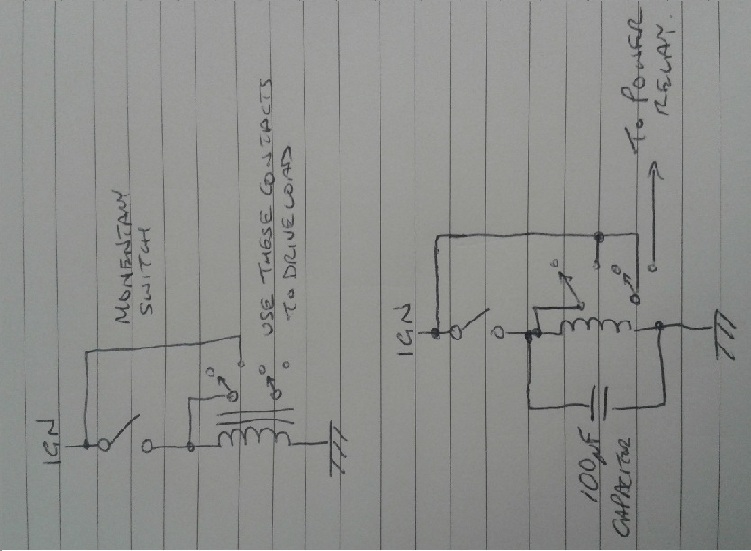 IGN
MOMENTARY
SWITCH
USE THESE CONTACTS
TO DRIVE LOAD
IGN
100µF
CAPACITOR
TO POWER
RELAY.